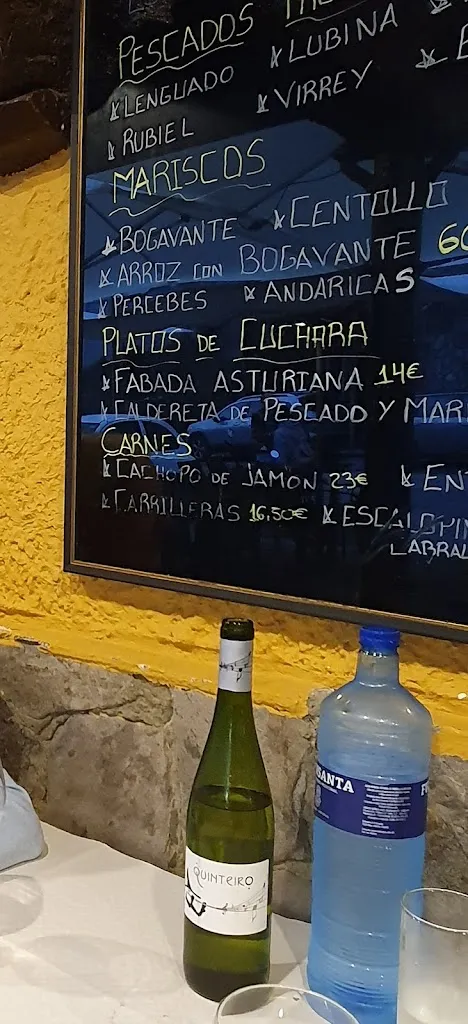 PESCADOS
LENGUADO
LUBINA
RUBIEL
VIRREY
MARISCOS
BOGAVANTE
CENTOLLO
ARROZ CON BOGAVANTE 60
PERCEBES
ANDARICAS
PLATOS DE CUCHARA
FABADA ASTURIANA 14€
CALDERETA DE PESCADO Y MAR
CARNES
CACHOPO DE JAMON 23€ EN
CARRILLERAS 16,50€ ESCALOPIN
LABRAL
QUINTEIRO
SANTA